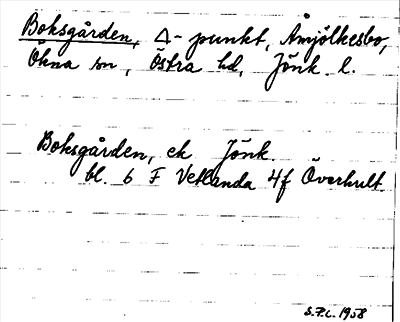 Boksgården, Δ-punkt, Åmjölkesbo,
Ökna sn, Östra hd, Jönk. l.
Boksgården, ek Jönk.
bl. 6 F Vetlanda 4f Överhult.
S.F.L. 1958